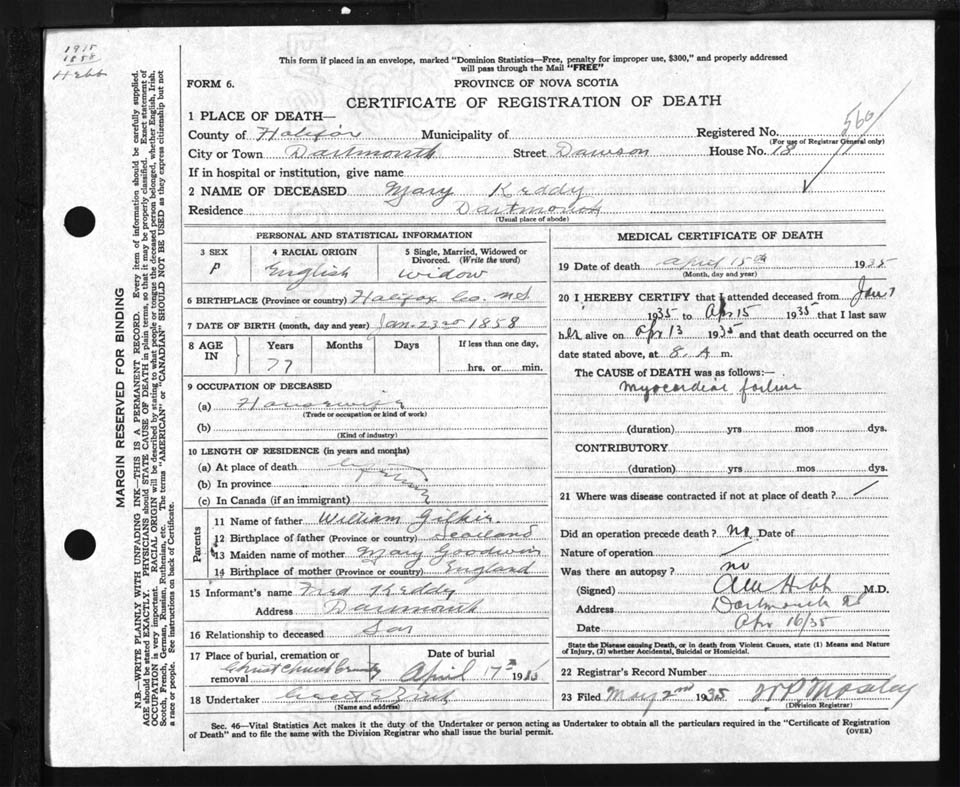 1915
1858
Hebb
This form if placed in an envelope, marked "Dominion Statistics—Free, penalty for improper use, $300," and properly addressed
will pass through the Mail "FREE"
FORM 6.
PROVINCE OF NOVA SCOTIA
CERTIFICATE OF REGISTRATION OF DEATH
1 PLACE OF DEATH—
County of Halifax Municipality of Registered No. 560
(For use of Registrar General only)
City or Town Dartmouth Street Dawson House No. 18
If in hospital or institution, give name
2 NAME OF DECEASED Mary Keddy
Residence Dartmouth
(Usual place of abode)
PERSONAL AND STATISTICAL INFORMATION
3 SEX 4 RACIAL ORIGIN 5 Single, Married, Widowed or
Divorced. (Write the word)
F English widow
6 BIRTHPLACE (Province or country) Halifax Co. NS
7 DATE OF BIRTH (month, day and year) Jan. 23rd 1858
8 AGE IN Years Months Days If less than one day,
77 hrs. or min.
9 OCCUPATION OF DECEASED
(a) Housewife
(Trade or occupation or kind of work)
(b)
(Kind of industry)
10 LENGTH OF RESIDENCE (in years and months)
(a) At place of death
(b) In province
(c) In Canada (if an immigrant)
Parents
11 Name of father William Gilkie
12 Birthplace of father (Province or country) Scotland
13 Maiden name of mother Mary Goodwin
14 Birthplace of mother (Province or country) England
15 Informant's name Fred Keddy
Address Dartmouth
16 Relationship to deceased Son
17 Place of burial, cremation or Date of burial
removal Christ Church April 17th 1935
18 Undertaker
(Name and address)
MEDICAL CERTIFICATE OF DEATH
19 Date of death April 15th 1935
(Month, day and year)
20 I HEREBY CERTIFY that I attended deceased from Jan 7
1935 to Apr 15 1935 that I last saw
her alive on Apr 13 1935 and that death occurred on the
date stated above, at 8. A m.
The CAUSE of DEATH was as follows:—
Myocardial failure
(duration) yrs mos dys.
CONTRIBUTORY
(duration) yrs mos dys.
21 Where was disease contracted if not at place of death?
Did an operation precede death? No Date of
Nature of operation
Was there an autopsy? no
(Signed) Hebb M.D.
Address Dartmouth
Date Apr 16/35
State the Disease causing Death, or in death from Violent Causes, state (1) Means and Nature
of Injury, (2) whether Accidental, Suicidal or Homicidal.
22 Registrar's Record Number
23 Filed May 2nd 1935 Mosley
(Division Registrar)
Sec. 46—Vital Statistics Act makes it the duty of the Undertaker or person acting as Undertaker to obtain all the particulars required in the "Certificate of Registration
of Death" and to file the same with the Division Registrar who shall issue the burial permit.
(OVER)
MARGIN RESERVED FOR BINDING
N.B.—WRITE PLAINLY WITH UNFADING INK—THIS IS A PERMANENT RECORD. Every item of information should be carefully supplied.
AGE should be stated EXACTLY. PHYSICIANS should STATE CAUSE OF DEATH in plain terms, so that it may be properly classified. Exact statement of
OCCUPATION is very important. RACIAL ORIGIN will be described by stating to what people or tongue the deceased person belonged, whether English, Irish,
Scotch, French, German, Russian, Ruthenian, etc. The terms "AMERICAN" or "CANADIAN" SHOULD NOT BE USED as they express citizenship but not
a race or people. See instructions on back of Certificate.